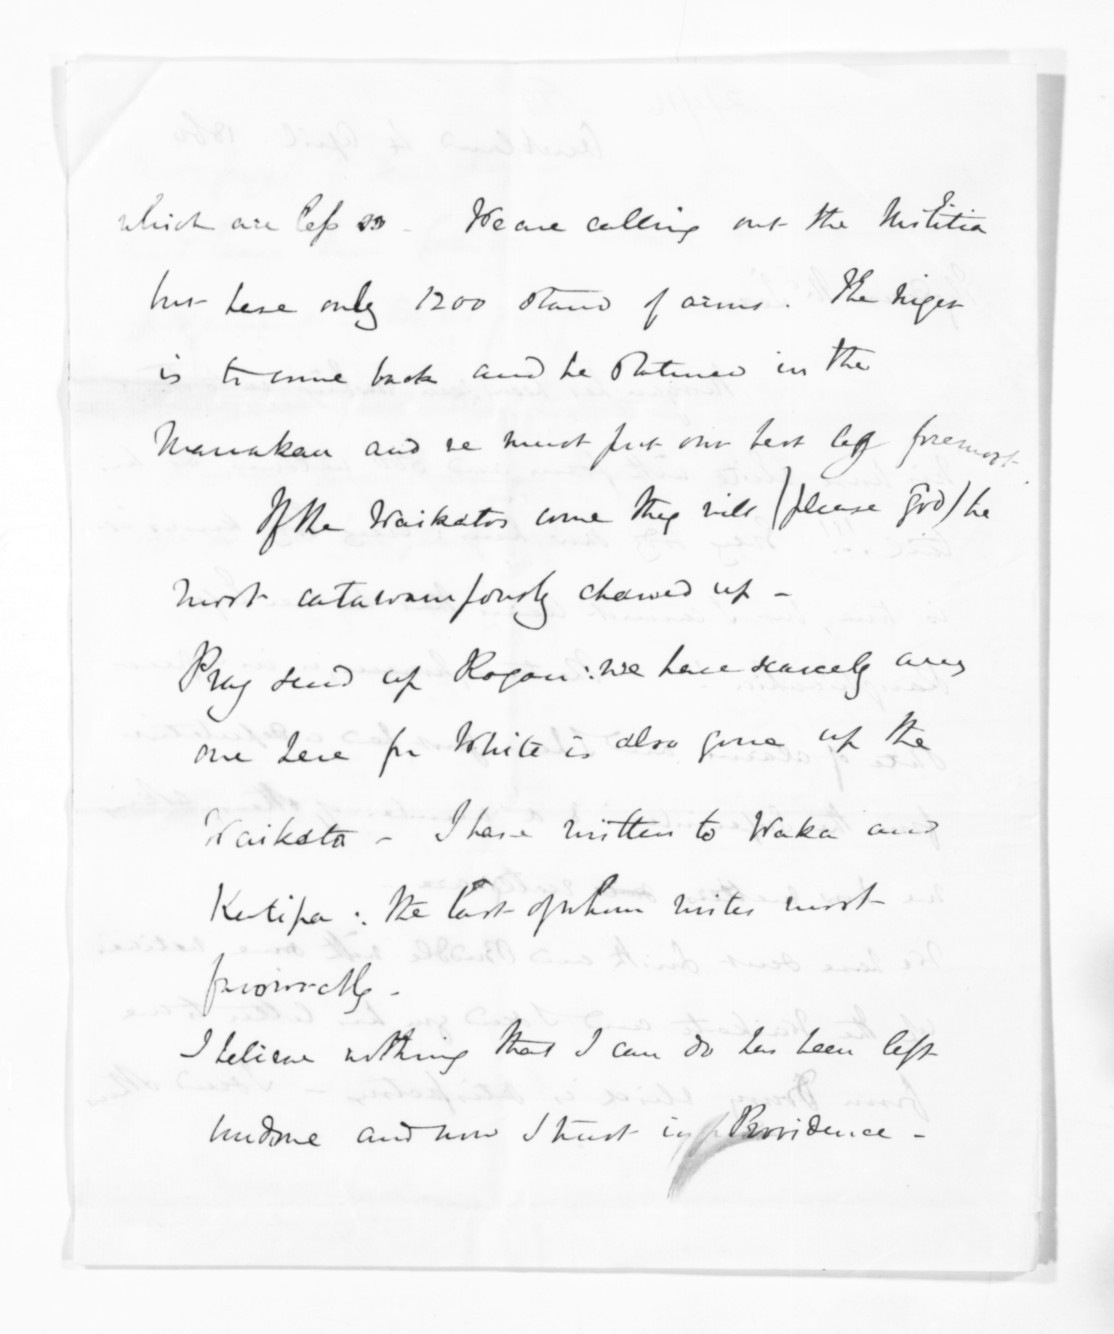 which are less so. We are calling out the Militia
but have only 1200 stand of arms. The Niger
is to come back and be stationed in the
Manukau and we must put our best leg foremost
If the Waikatos come they will (please God) be
most catawampously chawed up -
Pray send up Rogan: we have scarcely any
one here for White is also gone up the
Waikato - I have written to Waka and
Katipa: the last of whom writes most
I believe nothing that I can do has been left
undone and now I trust in Providence -